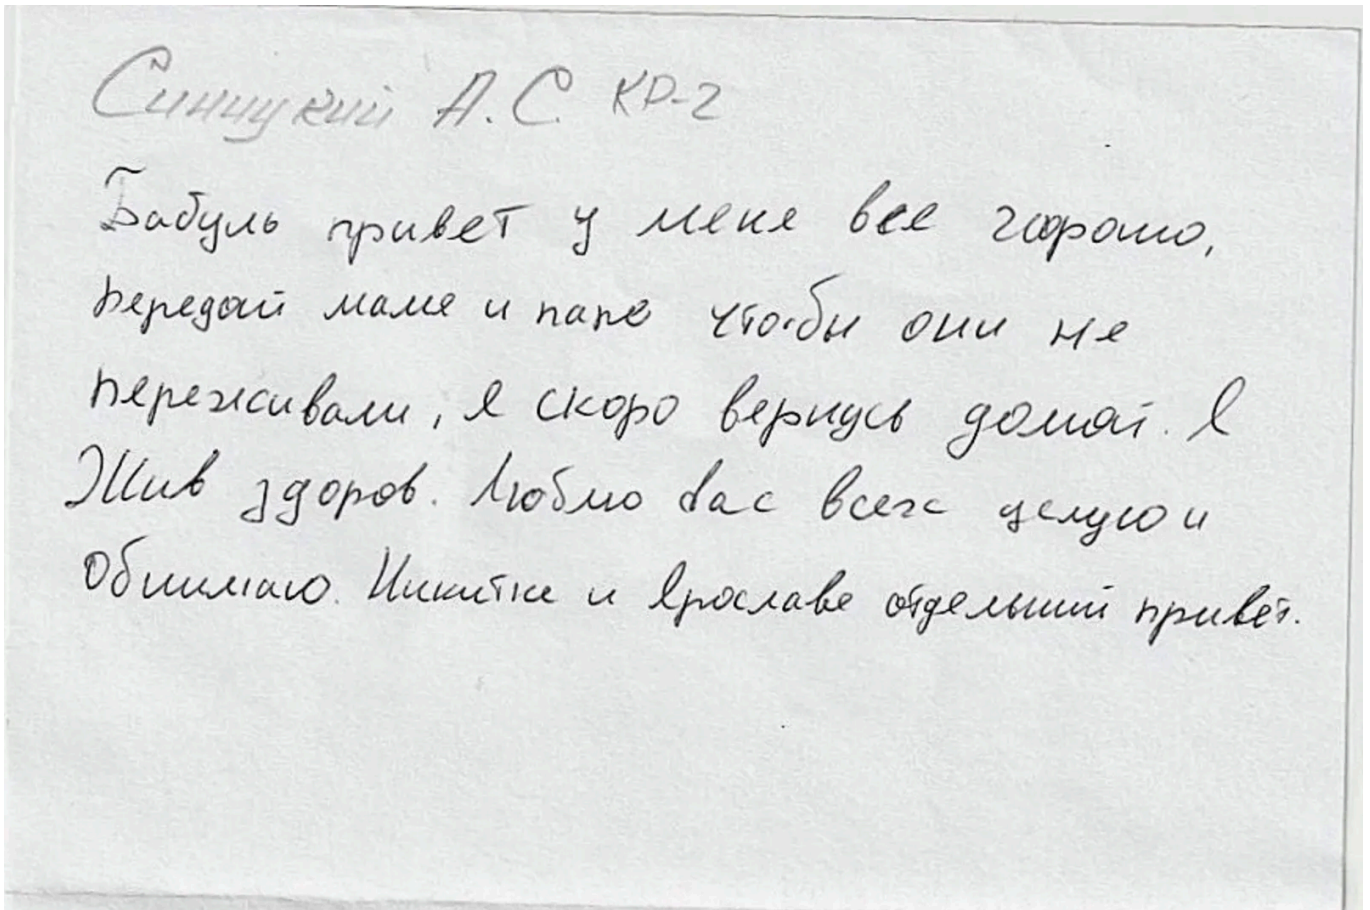 Синицкий А.С. КР-2
Бабуль привет у меня все хорошо,
передай маме и папе чтобы они не
переживали, я скоро вернусь домой. Я
Жив здоров. Люблю вас всех целую и
Обнимаю. Никитке и Ярославе отдельный привет.